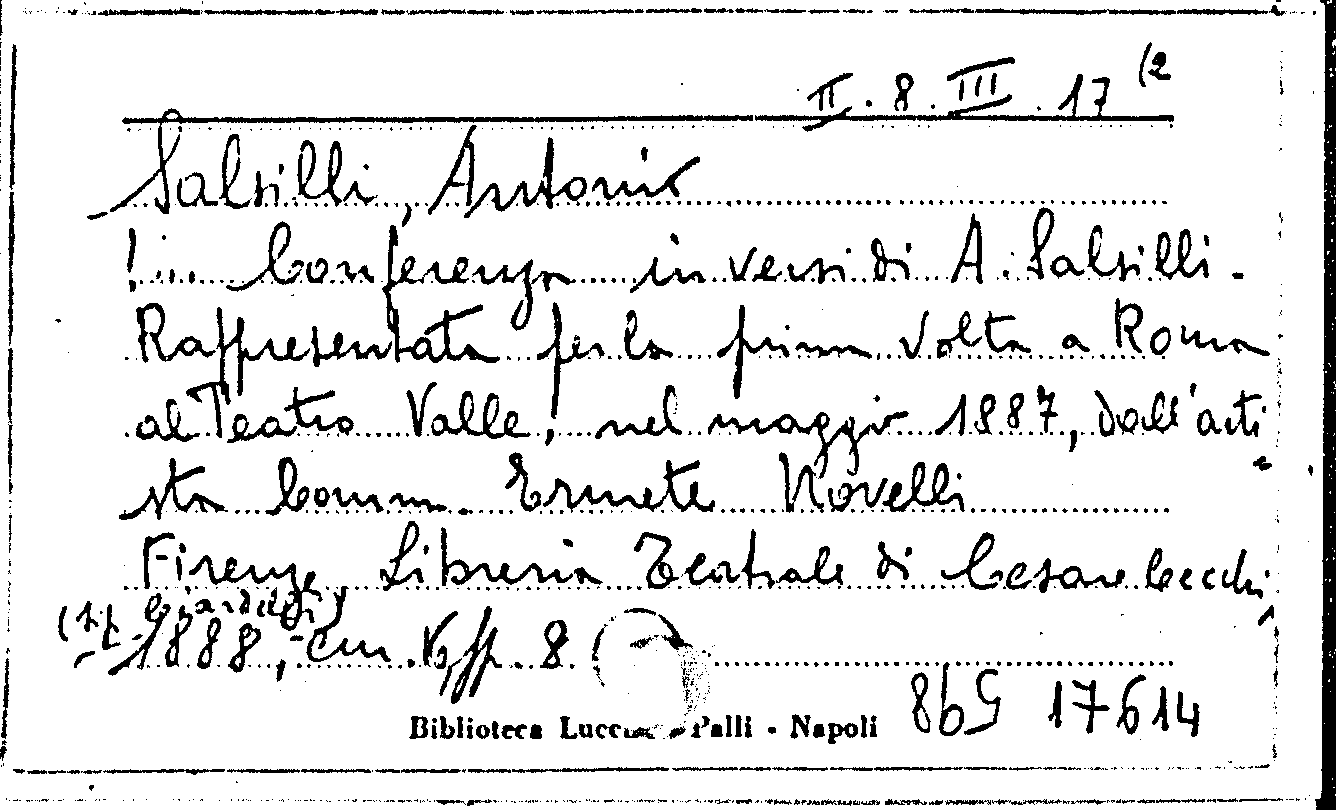 II. 8. III. 17 (2
Salsilli, Antonio
!... Conferenza in versi di A. Salsilli.
Rappresentata per la prima volta a Roma
al Teatro Valle, nel maggio 1887, dall'arti
sta Comm. Ermete Novelli
Firenze, Libreria Teatrale di Cesare Cecchi,
(Tip. Giardelli)
1888, cm. pp. 8
865 17614
Biblioteca Palli - Napoli